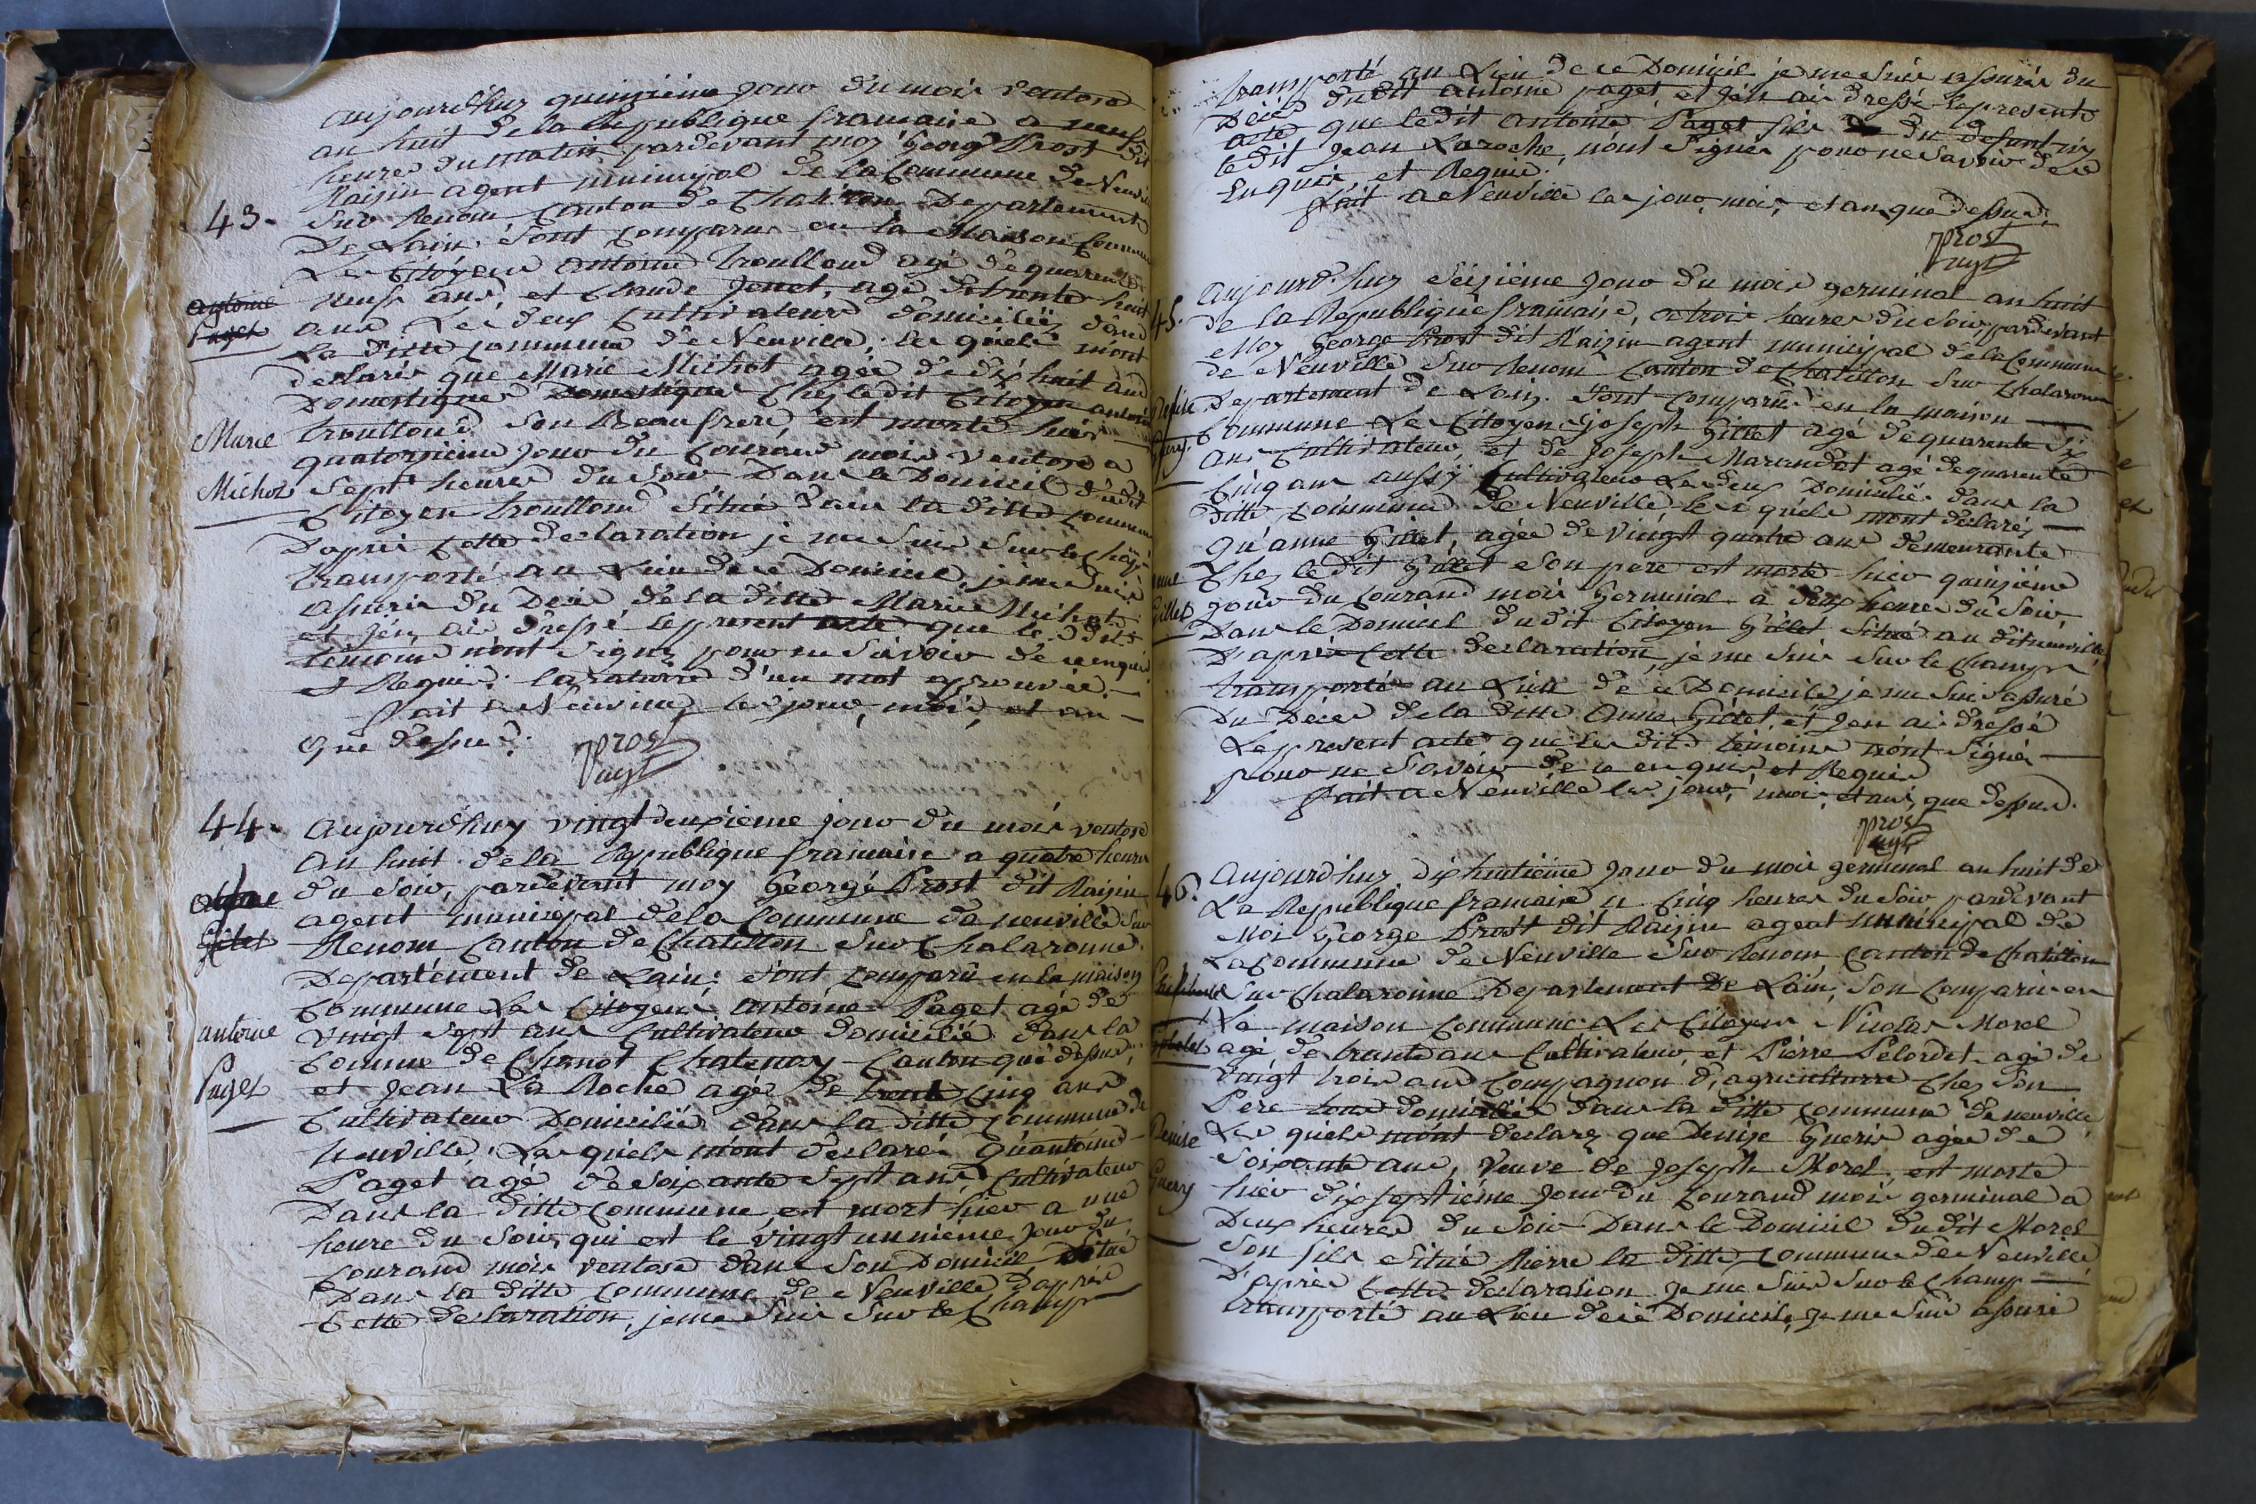 aujourdhuy quinzieme jour du mois ventose
an huit de la Republique francaise a neuf
heures du matin pardevant moy George Prost dit
Raisin agent municipal de la Commune de Neuville
43. Sur Renom canton de Chatillon Departement
De Lain. Sont comparus en la Maison Commune
Les Citoyens antoine troulloud agé de quarente
neuf ans, et Claude Jenet, agé de trente huit
antoine
Paget
ans Les deux Cultivateurs domiciliés dans
La ditte commune de Neuville; les quels m'ont
declarés que Marie Michot agée de dix huit ans
Domestique Domestique chez ledit Citoyen antoine
Marie
troulloud Son Beaufrere, est morte hier
quatorzieme jour du Courand mois ventose a
Michot
Sept heures du Soir Dans le Domicil du dit
Citoyen troulloud Situé dans la ditte commune
D'aprés cette declaration je me Suis Sur le Champ
transporté au Lieu de ce Domicil, je me Suis
assurés du Decé de la ditte Marie Michot
et J'en ai Dressé le present acte que les dits
temoins n'ont Signez pour ne Savoir de ce enquis
et Requis. la rature d'un mot aprouvée.
fait a Neuville les jour, mois, et an
que dessus.
Prost
agt
44. Aujourdhuy vingt deuxieme jour du mois ventose
an huit de la Republique francaise a quatre heures
du Soir, pardevant moy George Prost dit Raisin
agent municipal de la Commune de neuville Sur
Gillet
Renom Canton de Chatillon Sur Chalaronne
Departement de Lain: Sont comparu en la maison
Commune Les Citoyens antoine Paget agé de
antoine
vingt Sept ans Cultivateur domicilié dans la
Commune de Chanoz Chatenay Canton que dessus,
Paget
et Jean La Roche agé de trente Cinq ans
Cultivateur Domiciliés dans la ditte commune de
neuville, Les quels m'ont declarés Qu'antoine
Paget agé de Soixante Sept ans, Cultivateur
Dans la ditte commune est mort hier a une
heure du Soir, qui est le vingt unnieme Jour du
Courand mois ventose dans Son Domicil Situé
Dans la ditte commune de Neuville D'aprés
Cette declaration, je me Suis Sur le Champ
transporté au Lieu de ce Domicil je me Suis assurés du
Decés dudit antoine paget, et J'en ais dressé le present
acte que ledit antoine Paget fils du defunt ny
ledit Jean Laroche, n'ont Signés pour ne Savoir de ce
Enquis et Requis.
fait a Neuville les jour, mois, et an que dessus.
Prost
agt
45. Aujourd'huy Seizieme Jour du mois germinal an huit
de la Republique francaise, a trois heures du Soir, pardevant
Moy George Prost dit Raisin agent municipal de la Commune
de Neuville Sur Renom Canton de Chatillon Sur Chalaronne
Departement de Lain. Sont comparus en la maison
Commune Les Citoyens joseph Gillet agé de quarente Six
ans Cultivateur, et de Joseph Marandet agé de quarente
Cinq ans aussy Cultivateur Les deux Domiciliés dans la
ditte commune de Neuville les quels mont declarés
Qu'anne Gillet, agée de vingt quatre ans demeurante
Chez le dit Gillet Son pere est morte hier quinzieme
Gillet
jour du Courand mois Germinal a deux heures du Soir,
Dans le Domicil dudit Citoyen Gillet Situé au dit neuville
D'aprés Cette declaration, je me Suis Sur le Champ
transporté au Lieu de ce Domicile, je me Suis assuré
Du Deces de la ditte Anne Gillet et J'en ai dressé
Le present acte que les dits temoins n'ont Signés
pour ne Savoir de ce enquis et Requis
fait a Neuville les jour, mois, et an, que dessus.
Prost
agt
46. Aujourd'huy dixhuitieme Jour du mois germinal an huit de
La Republique francaise a Cinq heures du Soir pardevant
Moi George Prost dit Raisin agent municipal de
La Commune de Neuville Sur Renom Canton de Chatillon
Sur Chalaronne Departement De Lain, Son comparus en
La maison Commune Les Citoyens Nicolas Morel
agé de trente ans Cultivateur, et Pierre Pelordet agé de
vingt trois ans compagnon d'agriculture Chez Son
Pere tous domiciliés dans la ditte commune de neuville
Denise
Les quels m'ont declarez que Denise Guerin agée de
Soixante ans, Veuve de Joseph Morel, est morte
Guery
hier dixseptiéme Jour du Courand mois germinal a
Deux heures du Soir Dans le Domicil dudit Morel
Son fils Situé Riere la ditte commune de Neuville
D'aprés Cette declaration je me Suis Sur le Champ
transporté au Lieu de ce Domicile, je me Suis assuré